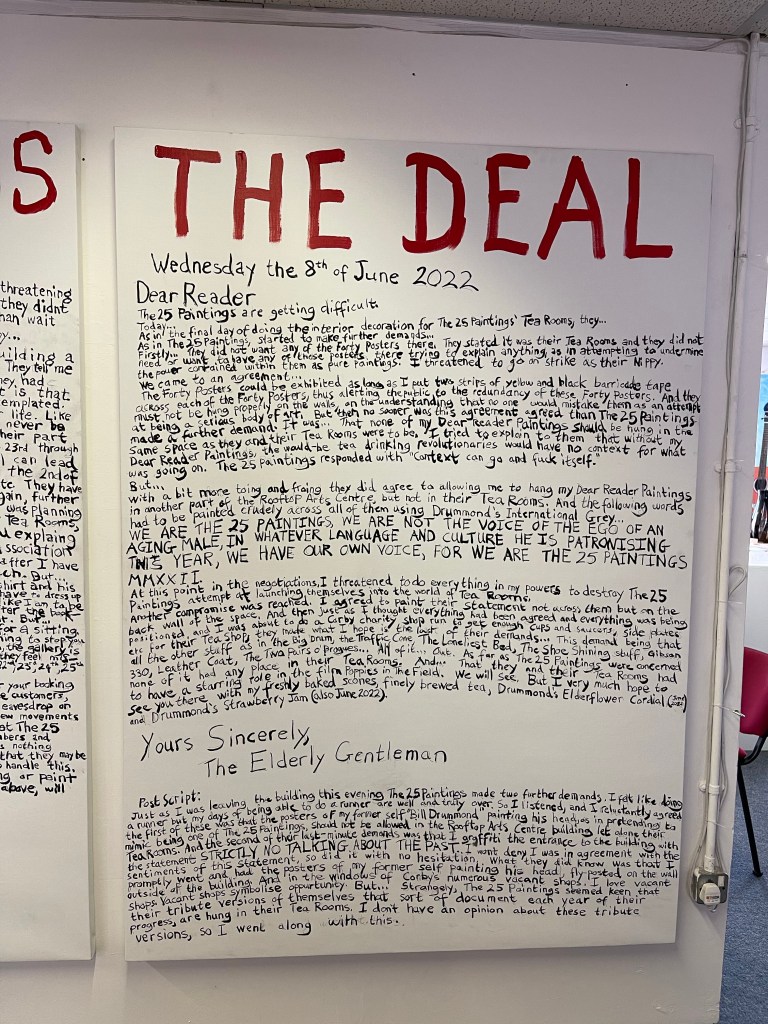 S
threatening
they didnt
than wait
y...
uilding a
They tell me
hey had
t is that
templated
life. Like
never be
their part
23rd through
I can lead
the 2nd of
te. They have
gain, further
was planning
Tea Rooms,
u explaing
ssociation
after I have
ch. But...
shirt and his
have to dress up
like I am to be
for the book
t. But...
for a sitting,
ning to stop you
the gallery is
they feel mis-
22nd, 23rd, 24th, 25th
r your booking
e customers,
eavesdrop on
ew movements
at The 25
mbers and
s nothing
that they may be
o handle this.
ng or paint
above, will
THE DEAL
Wednesday the 8th of June 2022
Dear Reader
The 25 Paintings are getting difficult.
Today...
As in the final day of doing the interior decoration for The 25 Paintings' Tea Rooms, they...
As in The 25 Paintings, started to make further demands...
Firstly... They did not want any of the Forty Posters there. They stated it was their Tea Rooms and they did not
need or want to have any of those posters there trying to explain anything, as in attempting to undermine
the power contained within them as pure Paintings. I threatened to go on strike as their Nippy.
We came to an agreement...
The Forty Posters could be exhibited as long as I put two strips of yellow and black barricade tape
across each of the Forty Posters, thus alerting the public to the redundancy of these Forty Posters. And they
must not be hung properly on the walls, on the understanding that no one would mistake them as an attempt
at being a serious body of art. But then no sooner was this agreement agreed than The 25 Paintings
made a further demand. It was... That none of my Dear Reader Paintings should be hung in the
same space as they and their Tea Rooms were to be. I tried to explain to them that without my
Dear Reader Paintings, the would-be tea drinking revolutionaries would have no context for what
was going on. The 25 Paintings responded with "Context can go and fuck itself."
But...
With a bit more toing and froing they did agree to allowing me to hang my Dear Reader Paintings
in another part of the Rooftop Arts Centre, but not in their Tea Rooms. And the following words
had to be painted crudely across all of them using Drummond's International Grey...
WE ARE THE 25 PAINTINGS, WE ARE NOT THE VOICE OF THE EGO OF AN
AGING MALE, IN WHATEVER LANGUAGE AND CULTURE HE IS PATRONISING
THIS YEAR, WE HAVE OUR OWN VOICE, FOR WE ARE THE 25 PAINTINGS
MMXXII
At this point in the negotiations, I threatened to do everything in my powers to destroy The 25
Paintings attempt at launching themselves into the world of Tea Rooms.
Another compromise was reached. I agreed to paint their statement not across them but on the
back wall of the space. And then just as I thought everything had been agreed and everything was being
positioned, and I was about to do a Corby charity shop run to get enough cups and saucers, side plates
etc for their Tea Shop, they made what I hope is the last of their demands... This demand being that
all the other stuff as in the Big Drum, the Traffic Cone, The Loneliest Bed, The Shoe Shining stuff, Gibson
330, Leather Coat, The Two Pairs o' Brogues... All of it... Out. As far as The 25 Paintings were concerned
none of it had any place in their Tea Rooms. And... That they and their Tea Rooms had
to have a starring role in the film Poppies In The Field. We will see. But I very much hope to
see you there with my freshly baked scones, finely brewed tea, Drummond's Elderflower Cordial (June 2022)
and Drummond's Strawberry Jam (also June 2022).
Yours Sincerely,
The Elderly Gentleman
Post Script:
Just as I was leaving the building this evening The 25 Paintings made two further demands. I felt like doing
a runner but my days of being able to do a runner are well and truly over. So I listened, and I reluctantly agreed
the first of these was that the posters of my former self "Bill Drummond" painting his head, as in pretending to
mimic being one of The 25 Paintings, should not be allowed in the Rooftop Arts Centre building, let alone their
Tea Rooms. And the second of their last-minute demands was that I graffiti the entrance to the building with
the statement STRICTLY NO TALKING ABOUT THE PAST. I wont deny I was in agreement with the
sentiments of this statement, so did it with no hesitation. What they did not know was that I
promptly went and had the posters of my former self painting his head, fly-posted on the wall
outside of the building. And in the windows of Corby's numerous vacant shops. I love vacant
shops. Vacant shops symbolise opportunity. But... Strangely, The 25 Paintings seemed keen that
their tribute versions of themselves that sort of document each year of their
progress, are hung in their Tea Rooms. I don't have an opinion about these tribute
versions, so I went along with this.